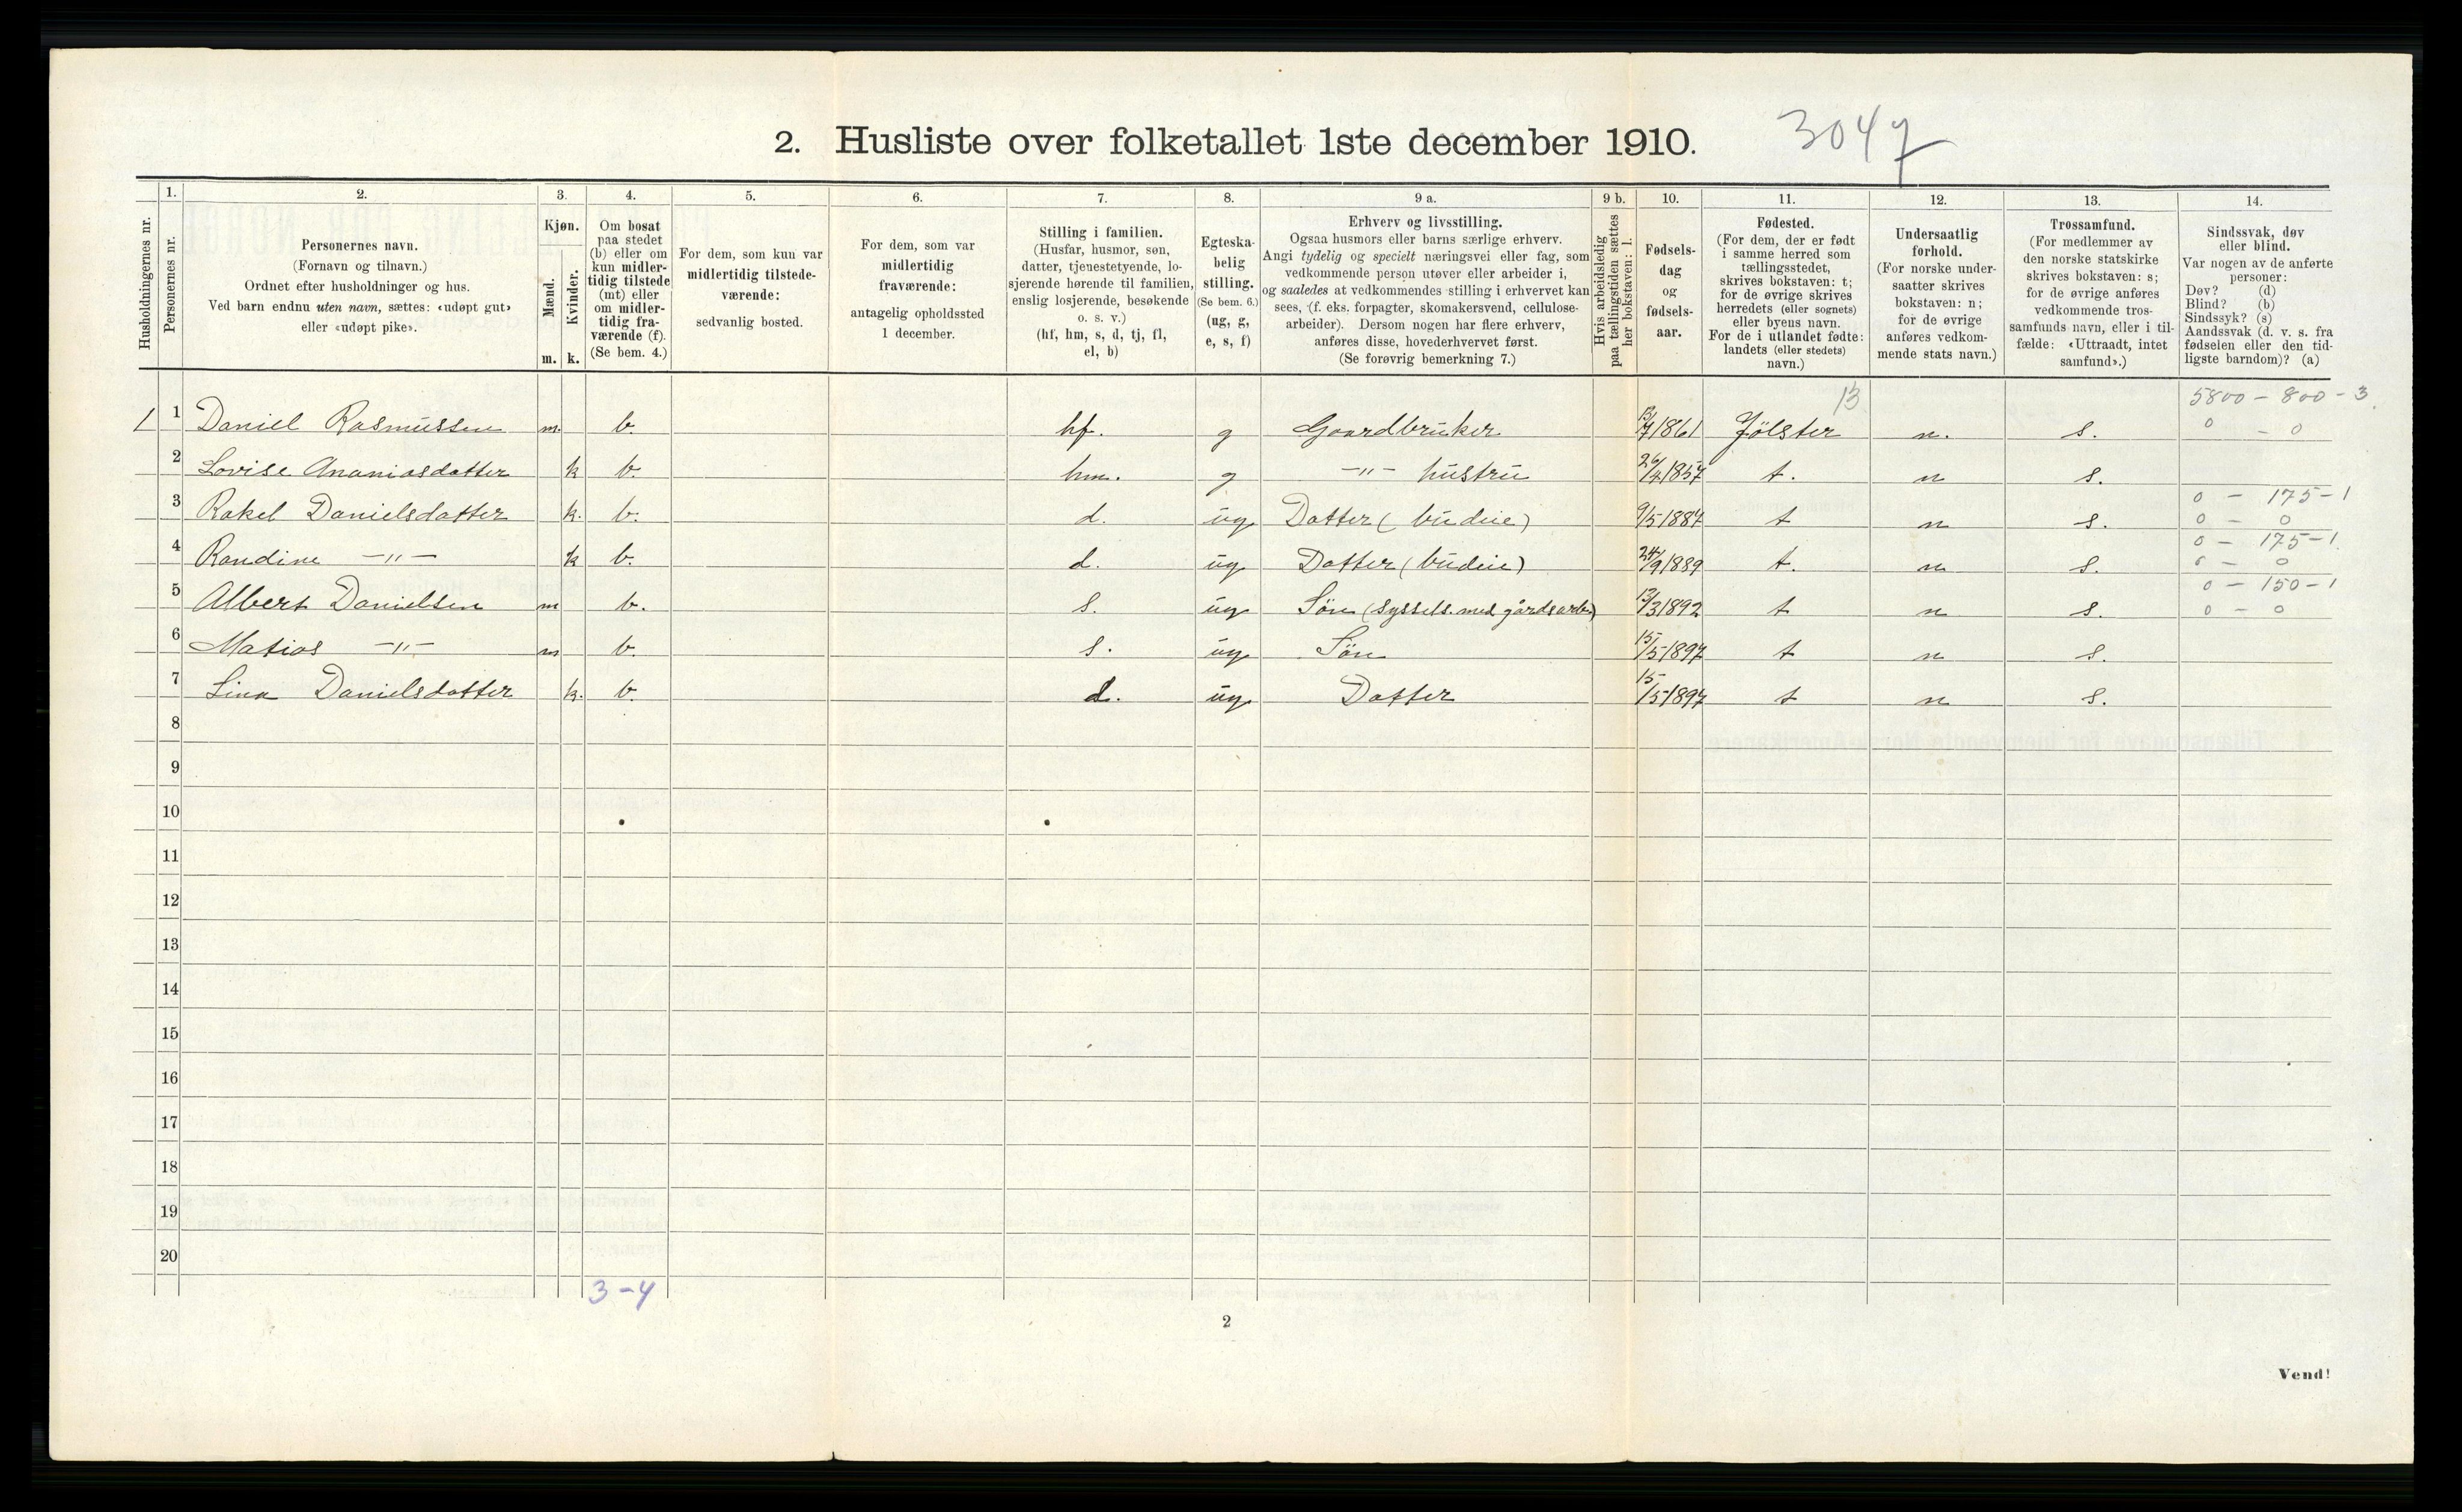 2. Husliste over folketallet 1ste december 1910. 3047
Husholdningernes nr.
1.
Personernes nr.
2.
Personernes navn.
(Fornavn og tilnavn.)
Ordnet efter husholdninger og hus.
Ved barn endnu uten navn, sættes: «udøpt gut»
eller «udøpt pike».
3.
Kjøn.
Mænd.
Kvinder.
m. k.
4.
Om bosat
paa stedet
(b) eller om
kun midler-
tidig tilstede
(mt) eller
om midler-
tidig fra-
værende (f).
(Se bem. 4.)
5.
For dem, som kun var
midlertidig tilstede-
værende:
sedvanlig bosted.
6.
For dem, som var
midlertidig
fraværende:
antagelig opholdssted
1 december.
7.
Stilling i familien.
(Husfar, husmor, søn,
datter, tjenestetyende, lo-
sjerende hørende til familien,
enslig losjerende, besøkende
o. s. v.)
(hf, hm, s, d, tj, fl,
el, b)
8.
Egteska-
belig
stilling.
(Se bem. 6.)
(ug, g,
e, s, f)
9 a.
Erhverv og livsstilling.
Ogsaa husmors eller barns særlige erhverv.
Angi tydelig og specielt næringsvei eller fag, som
vedkommende person utøver eller arbeider i,
og saaledes at vedkommendes stilling i erhvervet kan
sees, (f. eks. forpagter, skomakersvend, cellulose-
arbeider). Dersom nogen har flere erhverv,
anføres disse, hovederhvervet først.
(Se forøvrig bemerkning 7.)
9 b.
Hvis arbeidsledig
paa tællingstiden sættes
her bokstaven: l.
10.
Fødsels-
dag
og
fødsels-
aar.
11.
Fødested.
(For dem, der er født
i samme herred som
tællingsstedet,
skrives bokstaven: t;
for de øvrige skrives
herredets (eller sognets)
eller byens navn.
For de i utlandet fødte:
landets (eller stedets)
navn.)
12.
Undersaatlig
forhold.
(For norske under-
saatter skrives
bokstaven: n;
for de øvrige
anføres vedkom-
mende stats navn.)
13.
Trossamfund.
(For medlemmer av
den norske statskirke
skrives bokstaven: s;
for de øvrige anføres
vedkommende tros-
samfunds navn, eller i til-
fælde: «Uttraadt, intet
samfund».)
14.
Sindssvak, døv
eller blind.
Var nogen av de anførte
personer:
Døv? (d)
Blind? (b)
Sindssyk? (s)
Aandssvak (d. v. s. fra
fødselen eller den tid-
ligste barndom)? (a)
13 5800 - 800 - 3
1 1 Daniel Rasmussen m. b. hf. g Gaardbruker 13/7 1861 Jölster n. s. 0 - 0
2 Lovise Ananiasdatter k b. hm. g -"- hustru 26/4 1857 t. n s.
0 - 175 - 1
3 Rakel Danielsdatter k. b. d. ug Datter (budeie) 9/5 1887 t n s. 0 - 0
0 - 175 - 1
4 Randine -"- k b. d. ug Datter (budeie) 24/9 1889 t. n s. 0 - 0
0 - 150 - 1
5 Albert Danielsen m b. s. ug Sön (syssels. med gårdsarb.) 13/3 1892 t n s. 0 - 0
6 Matias -"- m b. s. ug Sön 15/5 1897 t n s.
7 Lina Danielsdatter k. b. d. ug Datter 15/5 1897 t n s.
8
9
10
11
12
13
14
15
16
17
18
19
20
3-4
2
Vend!